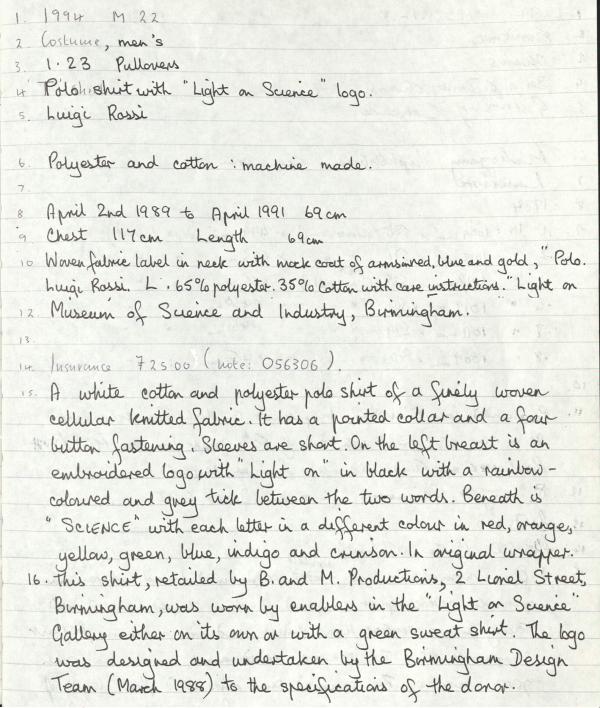 1. 1994 M 22
2. Costume, men's
3. 1.23 Pullovers
4. Polo shirt with "Light on Science" logo.
5. Luigi Rossi
6. Polyester and cotton : machine made.
7.
8 April 2nd 1989 to April 1991 69cm
9 Chest 117cm Length 69cm
10 Woven fabric label in neck with mock coat of arms in red, blue and gold, "Polo.
Luigi Rossi L . 65% polyester. 35% Cotton with care instructions." Light on
12. Museum of Science and Industry, Birmingham.
13.
14. Insurance 725.00 (note: 056306).
15. A white cotton and polyester polo shirt of a finely woven
cellular knitted fabric. It has a pointed collar and a four
button fastening. Sleeves are short. On the left breast is an
embroidered logo with "Light on" in black with a rainbow-
coloured and grey tick between the two words. Beneath is
"SCIENCE" with each letter in a different colour in red, orange,
yellow, green, blue, indigo and crimson. In original wrapper.
16. This shirt, retailed by B. and M. Productions, 2 Lionel Street,
Birmingham, was worn by enablers in the "Light on Science"
Gallery either on its own or with a green sweat shirt. The logo
was designed and undertaken by the Birmingham Design
Team (March 1988) to the specifications of the donor.